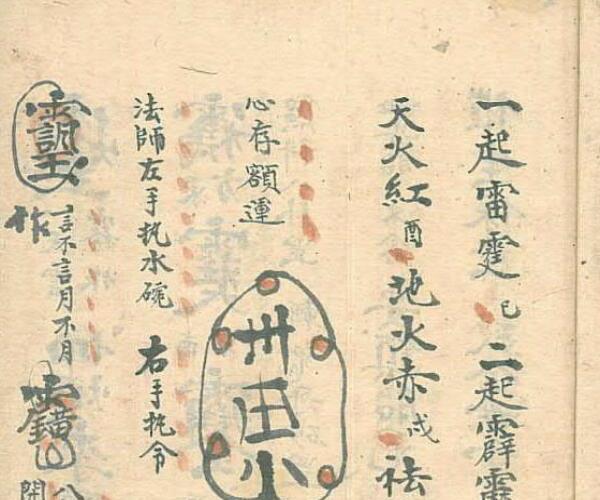 一起雷霆 巳 二起霹靂
天火紅 酉 地火赤 戌 祛
心存額運
卅 田 小
法師左手执水碗 右手执令
言不言月不月
作